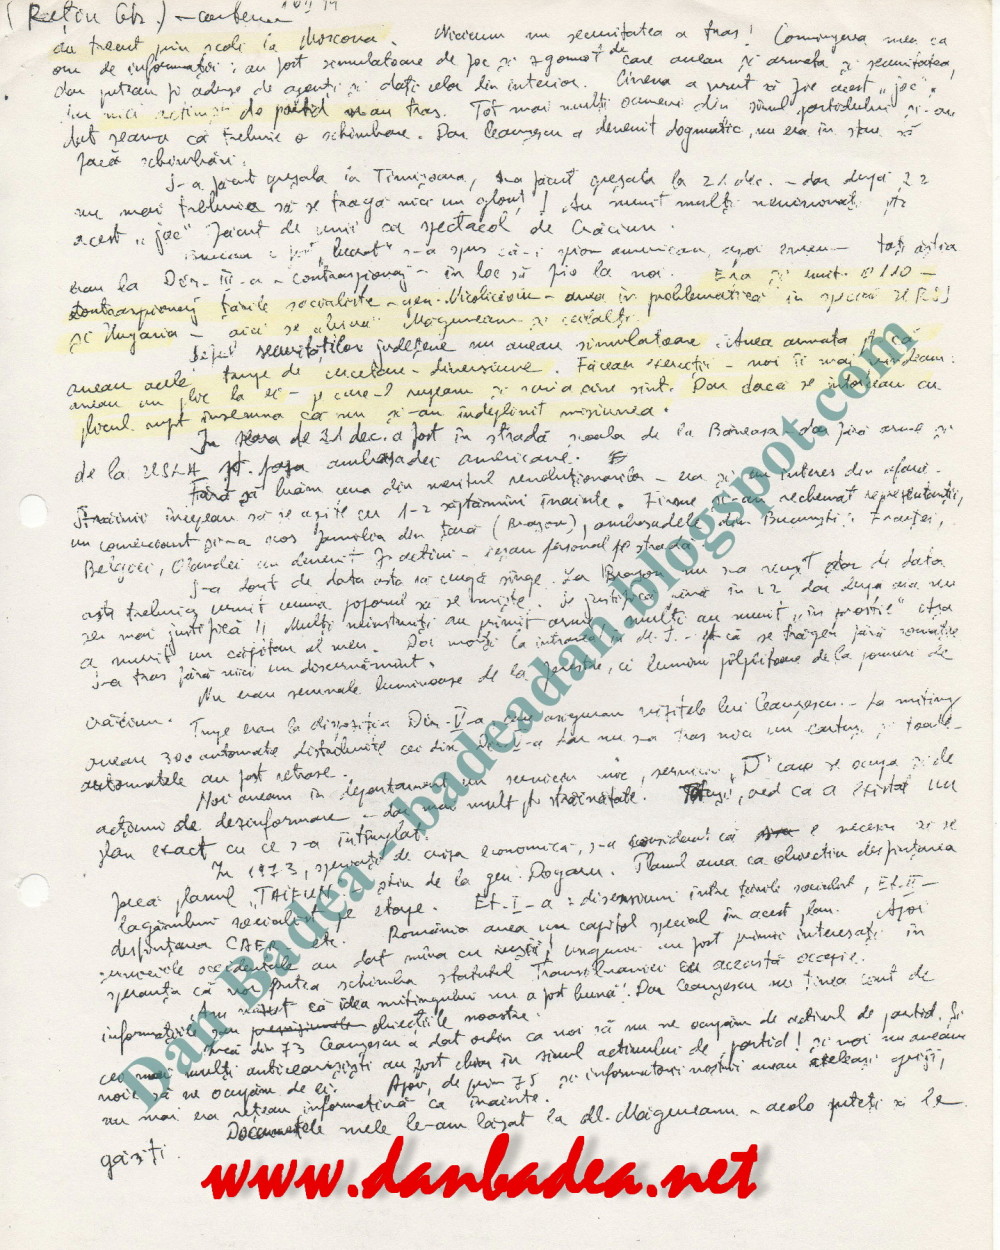 (Rațiu Gh.) – contrain
au trecut prin școli la Moscova. Niciun nu securitatea a tras! Convingerea mea ca
om de informații: au fost simulatoare de foc și zgomot de care aveau și armata și securitatea,
dar puteau fi aduse de agenți și dați celor din interior. Cineva a vrut să fie acest „joc".
nici activiști de partid n-au tras. Tot mai mulți oameni din sînul partidului și-au
dat seama că trebuie o schimbare. Dar Ceaușescu a devenit dogmatic, nu era în stare să
facă schimbări.
S-a făcut greșala la Timișoara, s-a făcut greșala la 21 dec. – dar după 22
nu mai trebuia să se tragă nici un glonț! Au murit mulți nevinovați ptr
acest „joc" făcut de unii ca spectacol de Crăciun.
s-a spus că-i spion american, apoi toți ăștia
erau la Dir. III-a – contraspionaj – în loc să fie la noi. Era și unit. 0110 –
contraspionaj țările socialiste – gen. Nicolicioiu – avea în problematică în special URSS
și Ungaria – aici se „lucra" Măgureanu și ceilalți.
Șefii securităților județene nu aveau simulatoare. Avea armata pt că
aveau acele trupe de cercetare-diversiune. Făceau exerciții – noi îi mai prindeam:
aveau un plic la ei – pe care-l rupeam și scria cine sînt. Dar dacă se întorceau cu
plicul rupt însemna că nu și-au îndeplinit misiunea.
În seara de 21 dec. a fost în stradă școala de la Băneasa – dar fără arme și
de la USLA pt. paza ambasadei americane.
Fără să luăm ceva din meritul revoluționarilor – era și un interes din afară.
Străinii începeau să se agite cu 1-2 săptămîni înainte. Firme și-au rechemat reprezentanții,
un comerciant și-a scos familia din țară (Brașov), ambasadele din București: Franței,
Belgiei, Olandei au devenit f. active – ieșeau personal pe stradă
S-a dorit de data asta să curgă sînge. La Brașov nu s-a reușit dar de data
asta trebuia urnit cumva poporul să se miște. Se justifică pînă în 22 dar după aia nu
se mai justifică!! Mulți neinstruiți au primit arme, mulți au murit „în prostie" Așa
a murit un căpitan al meu. Doi morți la intrarea în M.I. – pt că se trăgea fără somație
S-a tras fără nici un discernămînt.
Nu erau semnale luminoase de la ferestre, ci lumini pîlpîitoare de la pomuri de
crăciun.
Trupe erau la dispoziția Dir. V-a care asigurau vizitele lui Ceaușescu. La miting
aveau 300 automate distribuite cei din Dir. V-a dar nu s-a tras nici un cartuș și toate
automatele au fost retrase.
Noi aveam în departament un serviciu mic, serviciu „D" care se ocupa și de
acțiuni de dezinformare – dar mai mult pt străinătate. Totuși, cred că a existat un
plan exact cu ce s-a întîmplat.
În 1973, speriați de criza economică, s-a considerat că e necesar să se
facă planul „TAIFUN" – știu de la gen. Dogaru. Planul avea ca obiectiv desființarea
lagărului socialist pe etape. Et. I-a: disensiuni între țările socialist, Et. II –
desființarea CAER etc. România avea un capitol special în acest plan. Apoi
serviciile occidentale au dat mîna cu rușii! Ungurii au fost primii interesați în
speranța că vor putea schimba statutul Transilvaniei cu această ocazie.
Am că ideea mitingului nu a fost bună. Dar Ceaușescu nu ținea cont de
informațiile sau obiecțiile noastre.
Încă din 73 Ceaușescu a dat ordin ca noi să nu ne ocupăm de activul de partid. Și
cei mai mulți anticeaușiști au fost chiar în sînul activului de partid! și noi nu aveam
voie să ne ocupăm de ei. Apoi, de prin 75 și informatorii noștri aveau aceleași griji,
nu mai era rețeau informativă ca înainte.
Documentele mele le-am lăsat la dl. Măgureanu – acolo puteți să le
găsiți.
Dan Badea - badeadan.blogspot.com
www.danbadea.net